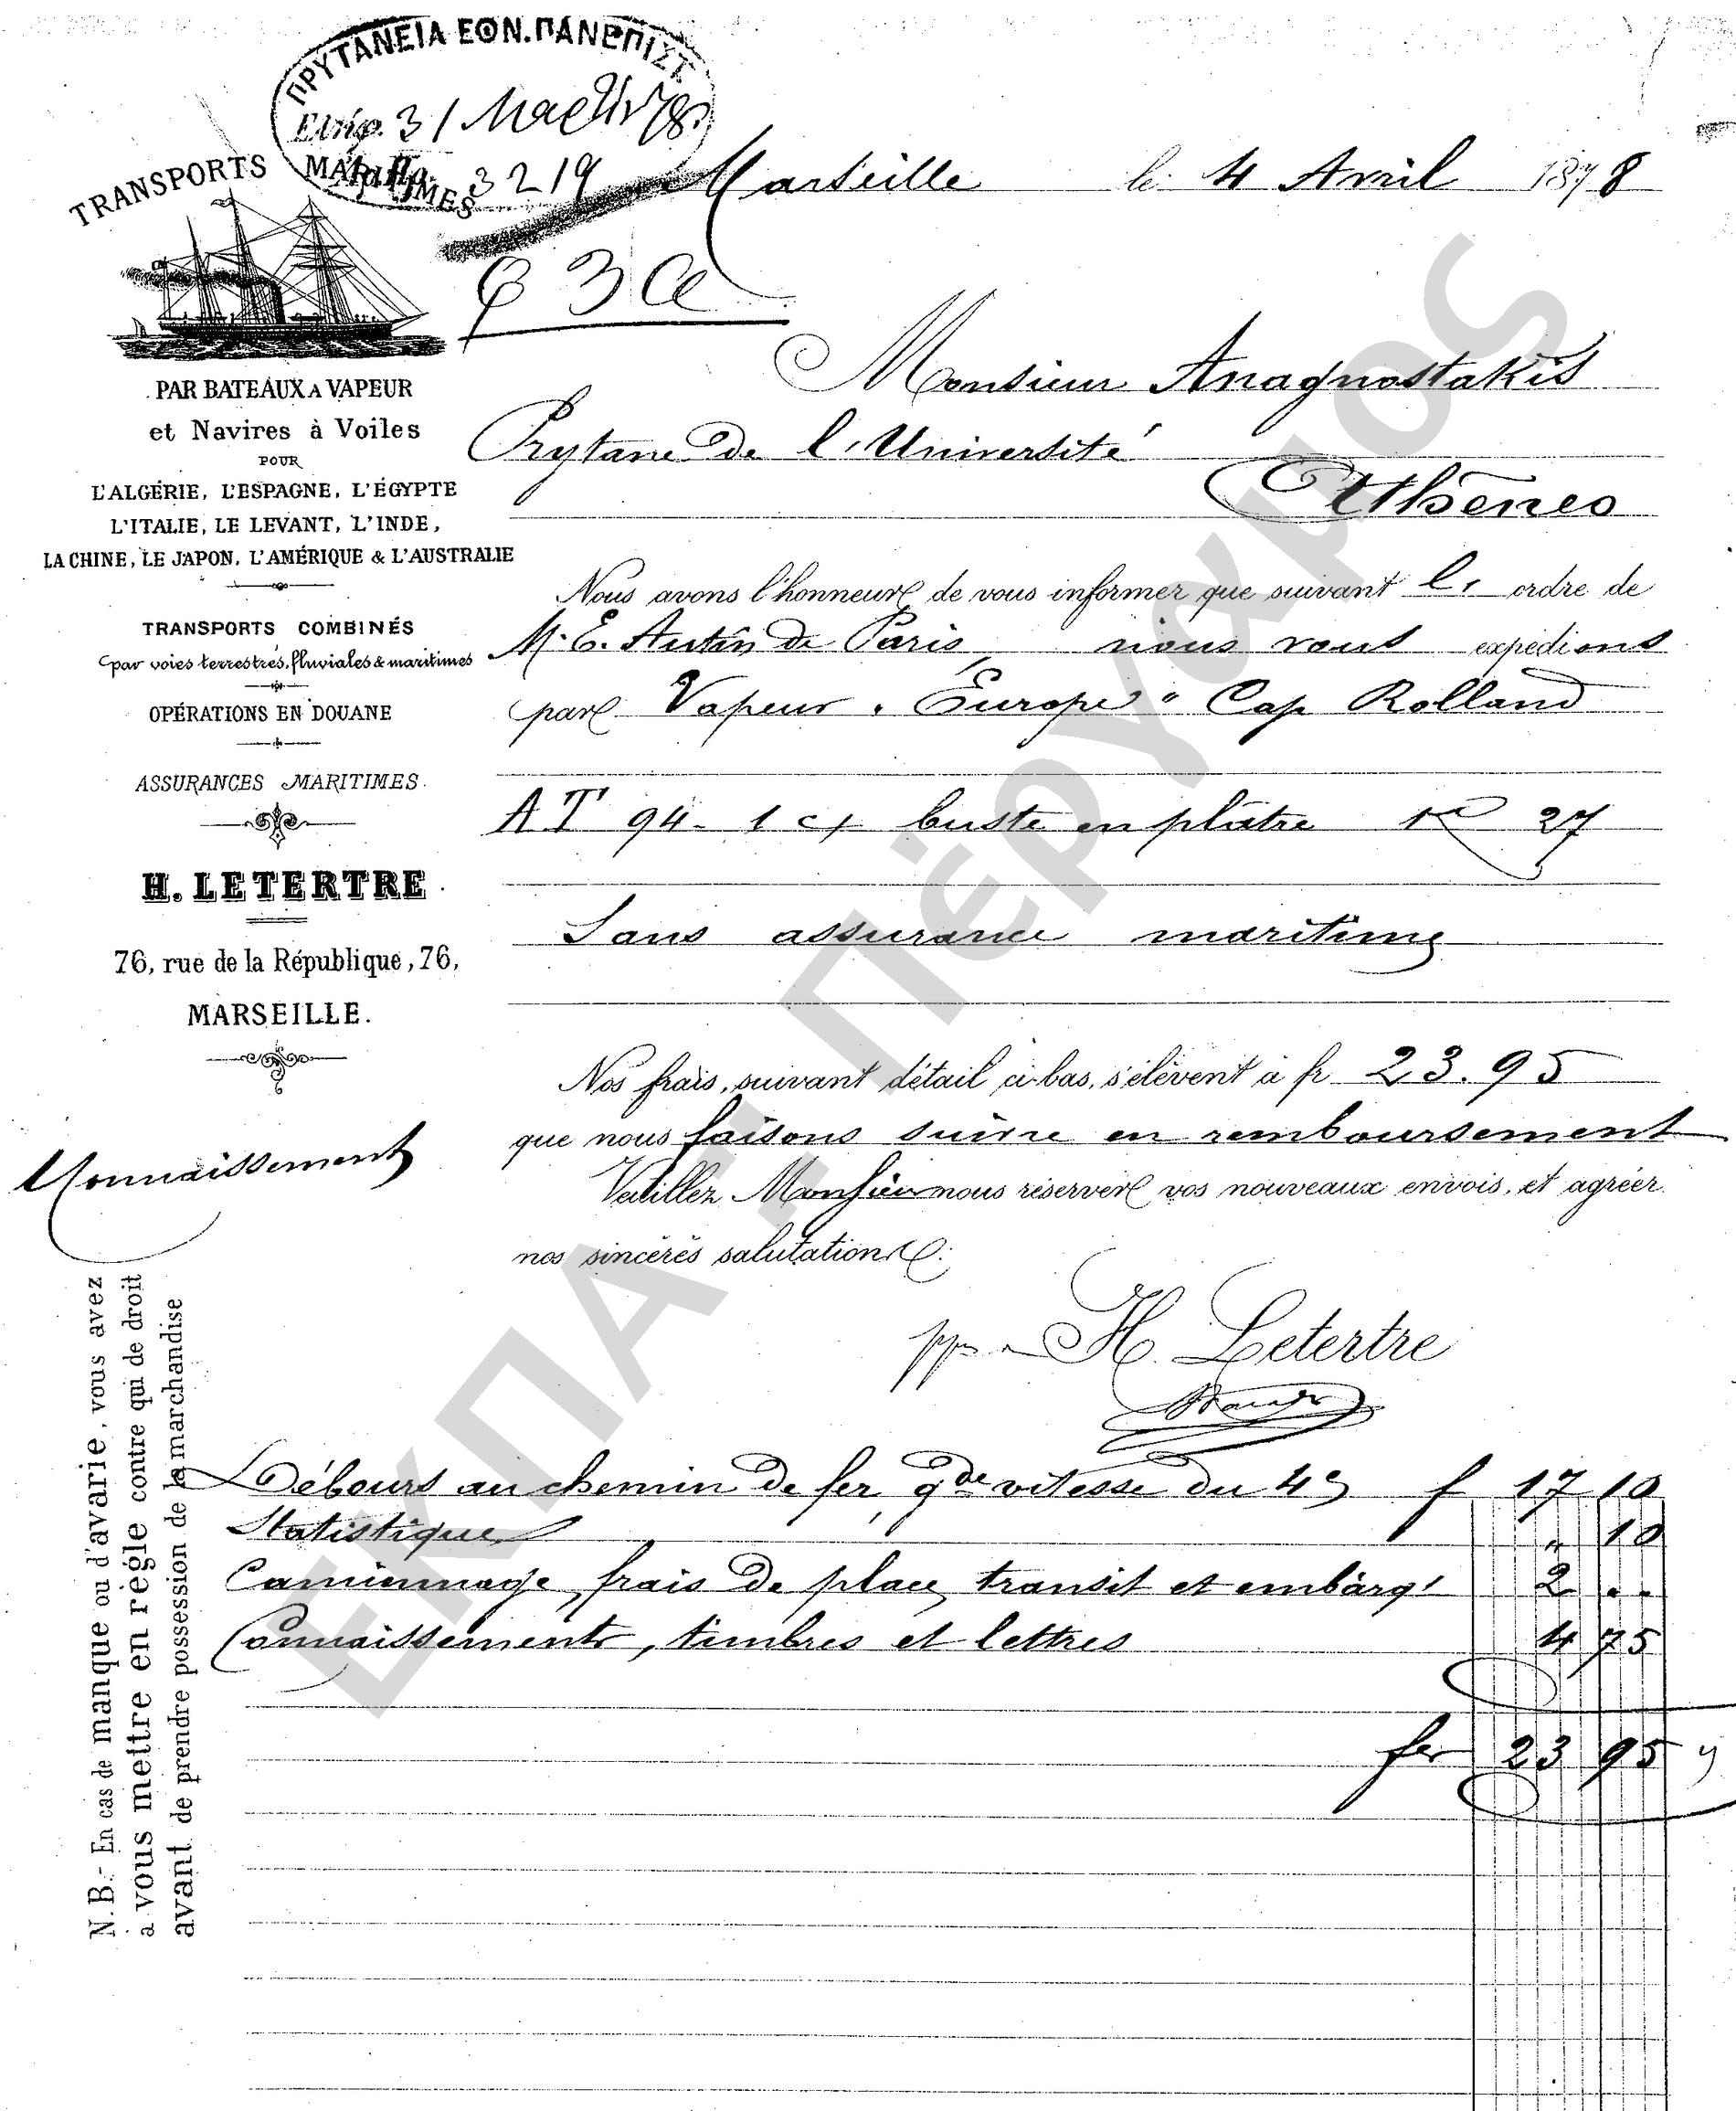 ΠΡΥΤΑΝΕΙΑ ΕΘΝ. ΠΑΝΕΠΙΣΤ.
31 78
3219
Marseille le 4 Avril 1878
TRANSPORTS MARITIMES
PAR BATEAUX A VAPEUR
et Navires à Voiles
POUR
L'ALGÉRIE, L'ESPAGNE, L'ÉGYPTE
L'ITALIE, LE LEVANT, L'INDE,
LA CHINE, LE JAPON, L'AMÉRIQUE & L'AUSTRALIE
TRANSPORTS COMBINÉS
par voies terrestres, fluviales & maritimes
OPÉRATIONS EN DOUANE
ASSURANCES MARITIMES.
H. LETERTRE
76, rue de la République, 76,
MARSEILLE.
Connaissement
N.B.- En cas de manque ou d'avarie, vous avez
à vous mettre en règle contre qui de droit
avant de prendre possession de la marchandise
Monsieur Anagnostakis
Prytane de l'Université
Athènes
Nous avons l'honneur de vous informer que suivant l' ordre de
M. E. Autin de Paris, nous vous expédions
par Vapeur "Europe" Cap Rolland
AT 94 - 1 buste en plâtre 27
Sans assurance maritime
Nos frais, suivant détail ci-bas, s'élèvent à fr 23.95
que nous faisons suivre en remboursement
Veuillez Monsieur nous réserver vos nouveaux envois, et agréer
nos sincères salutations.
pp H. Letertre
Débours au chemin de fer, gde vitesse du 4 f 17 10
Statistique " 10
Camionnage, frais de place, transit et embarqt 2 ..
Connaissements, timbres et lettres 4 75
fcs 23 95
ΕΚΠΑ - Πέργαμος